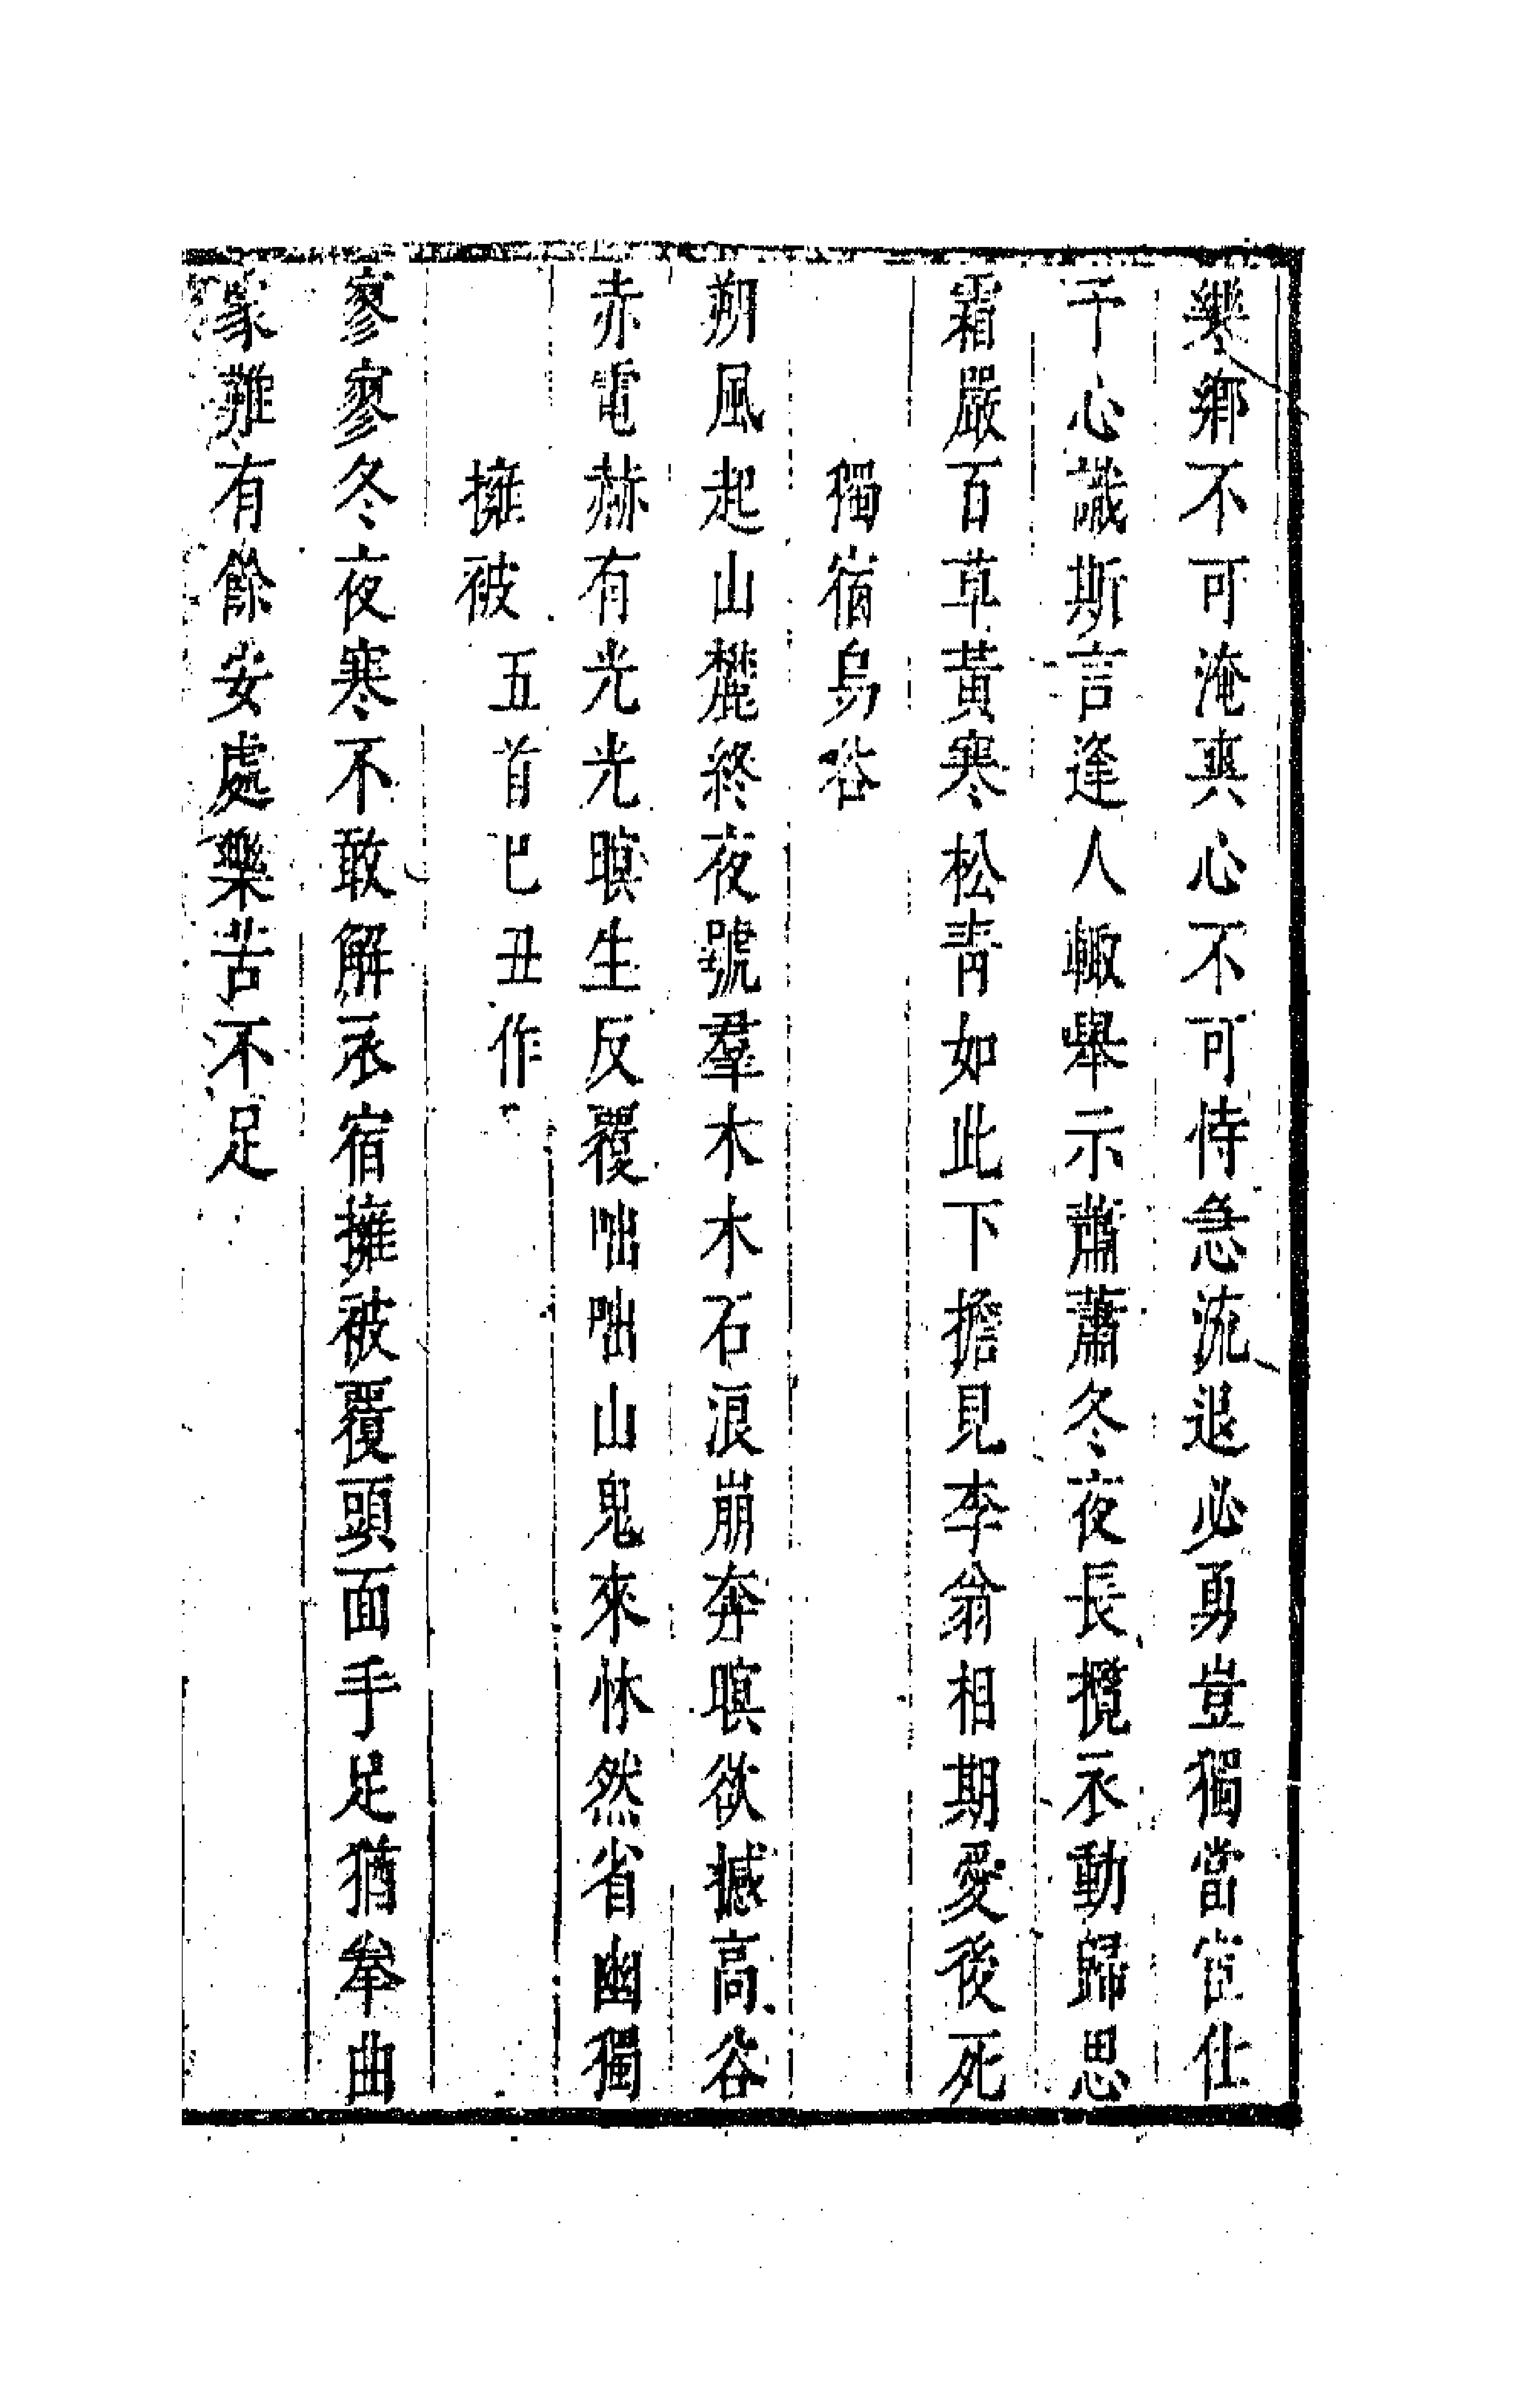 樂鄉不可淹爽心不可恃急流退必勇豈獨當宦仕
千心識斯言逢人輙舉示蕭蕭冬夜長攬衣動歸思
霜嚴百草黃寒松靑如此下擔見李翁相期愛後死
獨宿烏谷
朔風起山麓終夜號羣木木石浪崩奔暝欲撼高谷
赤電赫有光光暝生反覆咄咄山鬼來怵然省幽獨
擁被五首己丑作
寥寥冬夜寒不敢解衣宿擁被覆頭面手足猶拳曲
家難有餘安處樂苦不足